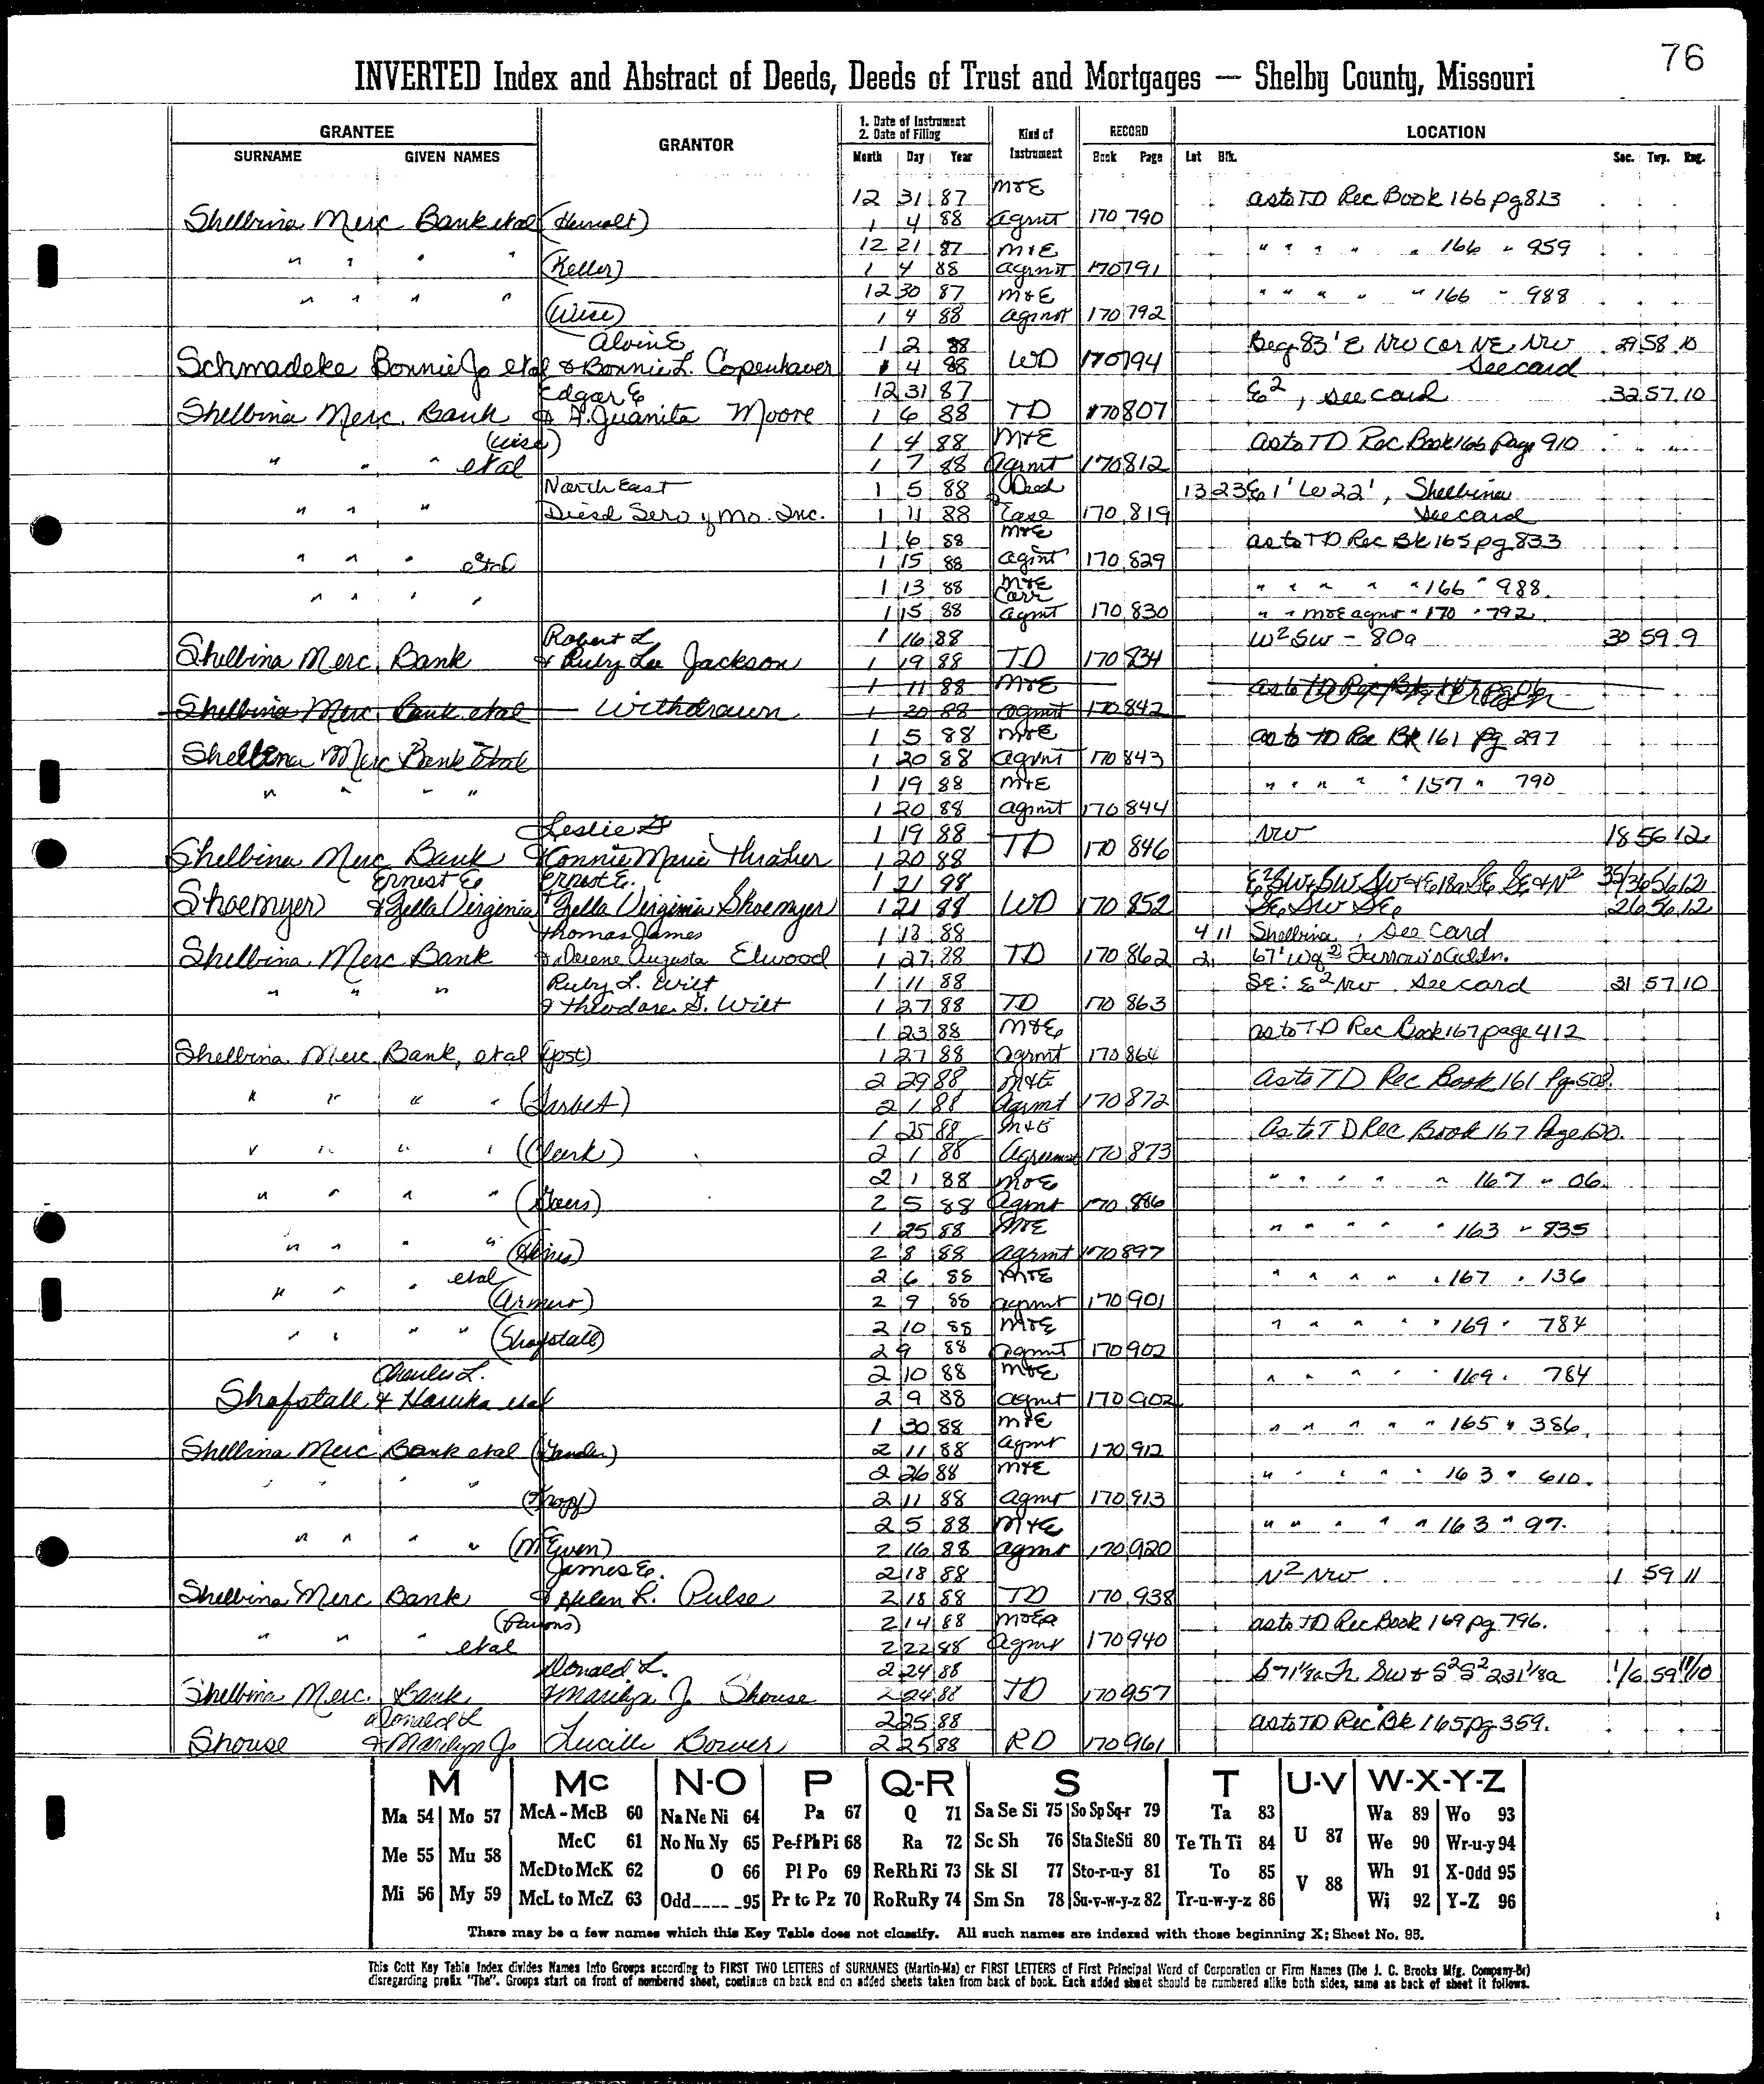 76
INVERTED Index and Abstract of Deeds, Deeds of Trust and Mortgages — Shelby County, Missouri
GRANTEE GRANTOR 1. Date of Instrument 2. Date of Filing Kind of Instrument RECORD LOCATION
SURNAME GIVEN NAMES Month Day Year Book Page Lot Blk. Sec. Twp. Rng.
12 31 87 M&E as to TD Rec Book 166 pg 813
Shelbina Merc Bank etal 1 4 88 agmt 170 790
12 21 87 M&E " " " " " 166 " 959
" " " " (Keller) 1 4 88 agrmt 170 791
12 30 87 M&E " " " " " 166 " 988
" " " " (Wise) 1 4 88 agmt 170 792
Alvin E 1 2 88 Beg 83' E NW cor NE NW 29 58 10
Schmadeke Bonnie Jo etal & Bonnie L. Copenhaver 1 4 88 WD 170 794 see card
Edgar E 12 31 87 E2, see card 32 57 10
Shelbina Merc. Bank & A. Juanita Moore 1 6 88 TD 170 807
(Wise) 1 4 88 M&E as to TD Rec Book 166 page 910
" " " etal 1 7 88 agrmt 170 812
North East 1 5 88 Deed 13 23 E 1' W 22', Shelbina
" " " Diesel Serv of Mo. Inc. 1 11 88 Ease 170 819 see card
1 6 88 M&E as to TD Rec Bk 165 pg 833
" " " etal 1 15 88 agmt 170 829
1 13 88 M&E Corr " " " " " 166 " 988
" " " " 1 15 88 agmt 170 830 " " M&E agmt " 170 " 792
Robert L 1 16 88 W2 SW - 80a 30 59 9
Shelbina Merc Bank & Ruby Lee Jackson 1 19 88 TD 170 834
1 11 88 M&E as to TD Rec Bk
Shelbina Merc. Bank etal Withdrawn 1 20 88 agmt 170 842
1 5 88 M&E as to TD Rec Bk 161 pg 297
Shelbina Merc Bank etal 1 20 88 agmt 170 843
1 19 88 M&E " " " " " 157 " 790
" " " " 1 20 88 agmt 170 844
Leslie 1 19 88 NW 18 56 12
Shelbina Merc Bank & Connie Marie Thrasher 1 20 88 TD 170 846
Ernest E. Ernest E. 1 21 98 E2 SW & SW SW & E 18a SE SE & N2 35/36 56 12
Shoemyer & Zella Virginia & Zella Virginia Shoemyer 1 21 88 WD 170 852 SE SW SE 26 56 12
Thomas James 1 13 88 4 11 Shelbina, see card
Shelbina Merc Bank & Darene Augusta Elwood 1 27 88 TD 170 862 2 67' W Farrow's addn.
Ruby L. Wilt 1 11 88 SE: E2 NW see card 31 57 10
" " " & Theodore G. Wilt 1 27 88 TD 170 863
1 23 88 M&E as to TD Rec Book 167 page 412
Shelbina Merc Bank, etal (Yost) 1 27 88 agrmt 170 864
2 29 88 M&E as to TD Rec Book 161 Pg 503.
" " " " 2 1 88 Agrmt 170 872
1 25 88 M&E as to TD Rec Book 167 Page 620.
" " " " (Clark) 2 1 88 Agreement 170 873
2 1 88 M&E " " " " " 167 " 06.
" " " " (Goers) 2 5 88 agmt 170 886
1 25 88 M&E " " " " " 163 " 835
" " " " (Hines) 2 8 88 agrmt 170 897
etal 2 6 88 M&E " " " " " 167 " 136
" " " 2 9 88 agmt 170 901
2 10 88 M&E " " " " " 169 " 784
" " " " (Shofstall) 2 9 88 agmt 170 902
Charles L. 2 10 88 M&E " " " " " 169 " 784
Shofstall & Haruka etal 2 9 88 agmt 170 902
1 30 88 M&E " " " " " 165 " 386
Shelbina Merc Bank etal 2 11 88 agmt 170 912
2 26 88 M&E " " " " " 163 " 610.
" " " " 2 11 88 agmt 170 913
2 5 88 M&E " " " " " 163 " 97.
" " " " (McEwen) 2 16 88 agmt 170 920
James E. 2 18 88 N2 NW 1 59 11
Shelbina Merc Bank & Helen R. Pulse 2 18 88 TD 170 938
(Parsons) 2 14 88 M&E as to TD Rec Book 169 pg 796.
" " " etal 2 22 88 agmt 170 940
Donald L. 2 24 88 S 71 1/8a Fr. SW & S2 S2 231 1/8a 1/6 59 11/10
Shelbina Merc. Bank & Marilyn J. Shouse 2 24 88 TD 170 957
Donald L 2 25 88 as to TD Rec Bk 165 pg 359.
Shouse & Marilyn Jo Lucille Bower 2 25 88 RD 170 961
M Mc N-O P Q-R S T U-V W-X-Y-Z
Ma 54 Mo 57 McA - McB 60 Na Ne Ni 64 Pa 67 Q 71 Sa Se Si 75 So Sp Sq-r 79 Ta 83 U 87 Wa 89 Wo 93
Me 55 Mu 58 McC 61 No Nu Ny 65 Pe-f Ph Pi 68 Ra 72 Sc Sh 76 Sta Ste Sti 80 Te Th Ti 84 V 88 We 90 Wr-u-y 94
McD to McK 62 O 66 Pl Po 69 Re Rh Ri 73 Sk Sl 77 Sto-r-u-y 81 To 85 Wh 91 X-Odd 95
Mi 56 My 59 McL to McZ 63 Odd 95 Pr to Pz 70 Ro Ru Ry 74 Sm Sn 78 Su-v-w-y-z 82 Tr-u-w-y-z 86 Wi 92 Y-Z 96
There may be a few names which this Key Table does not classify. All such names are indexed with those beginning X; Sheet No. 95.
This Cott Key Table Index divides Names Into Groups according to FIRST TWO LETTERS of SURNAMES (Martin-Ma) or FIRST LETTERS of First Principal Word of Corporation or Firm Names (The J. C. Brooks Mfg. Company-Br)
disregarding prefix "The". Groups start on front of numbered sheet, continue on back and on added sheets taken from back of book. Each added sheet should be numbered alike both sides, same as back of sheet it follows.